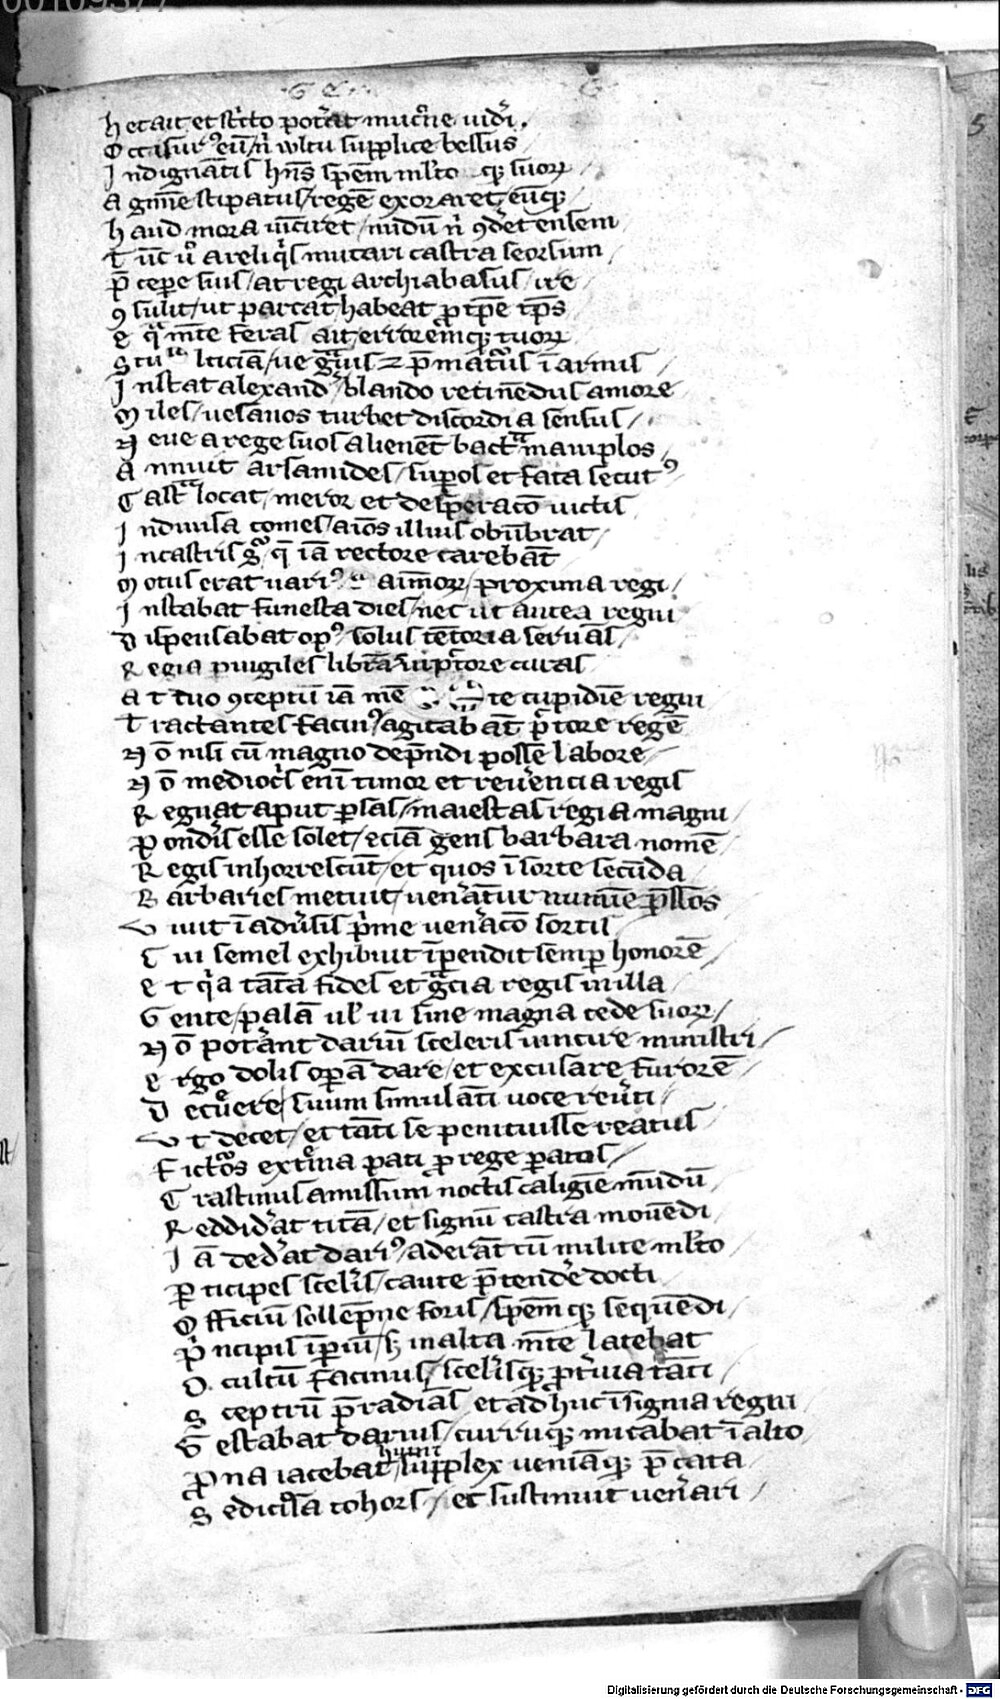 h ec ait et st̾cto pot̾at mucr̾ne uid̾i.
O ccisur⁹ eū/n̄ wltu supplice bessus
I ndignātis h̄ns sp̄em ml̾to qꝫ suoꝝ
a gmīe stipatus/regē exoraret, eūqꝫ
h aud mora uīciret/nudū n̾ ꝯd̾et ensem
t ūc u̾o a reliq̾s mutari castra seorsum
p̄ cepe suis/at regi archiabasus/ire
ꝯ sulit/ut parcat/habeat ꝓ tꝑe tꝑs
e q̾ m̄te feras ait, erroremqꝫ tuoꝝ
S tulticiā/ue gͣuis ⁊ p̄matus ī armis
I nstat alexand̾/blando retinēdus amore
M iles/uesanos turbet discordia sensus
N eue a rege suos alienēt bactͣ maniplos
A nnuit arsamides/suꝑos et fata secut⁹
C astͣ locat/meror et desperacō uictis
I ndiuisa comes/aīos illius obūbrat
I n castris gͦ q̄ iā rectore carebāt
M otus erat uari⁹ aīmoꝝ/proxima regi
I nstabat funesta dies/nec ut antea regni
D ispensabat op⁹ solus tētoria seruās
R egia ꝑuigiles librāt in pctore curas
A t duo ꝯceptū iā mē te cupidīe regni
T ractantes facin⁹/agitabāt p̾tore regē
N ō nisi cū magno dep̄ndi posse labore
N ō mediocs̾ enī timor et reu̾encia regis
R egnat aput ꝑsas/maiestas regia magni
P ond̾is esse solet/eciā gens barbara nomē
R egis inhorrescūt/et quos ī sorte secūda
B arbaries metuit/uen̾āt̾ur numīe p̄ssos
U iuit ī adu̾sis p̾me uen̾acō sortis
C ui semel exhibuit īpendit semꝑ honorē
E t q̾a tāta fides et gͣcia regis in illa
G ente/palā ul̾ ui sine magna cede suoꝝ
N ō pot̾ant dariū sceleris uincire ministri
E rgo dolis oꝑā dare/et excusare furorē
D ecͥuere/suum simulāti uoce reu̾ti
U t decet/et tāti se penituisse reatus
F ictͦos extͥma pati ꝓ rege paratos
C rastinus amissum noctis caligīe mūdū
R eddid̾at titā/et signū castra mouēdi
I ā ded̾at dari⁹/aderāt cū milite ml̾to
ꝑ ticipes scel̾is/caute p̄tend̾e docti
O fficiū sollēpne foris/spēmqꝫ sequēdi
P̾ ncipis īperiū/sꝫ in alta m̄te latebat
O ccultū facinus/scel̾isqꝫ ꝓt̾uia tāti
S ceptrū p̄radiās et adhuc īsignia regni
G estabat darius/curruqꝫ micabat ī alto
Ꝓ na iacebat humi supplex ueniāqꝫ p̄cata
S edicͦsa cohors/et sustinuit uen̾ari
Digitalisierung gefördert durch die Deutsche Forschungsgemeinschaft - DFG